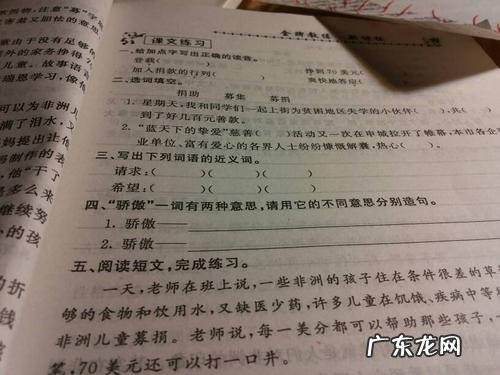 意“募”字
课文练习
一、给加点字写出正确的读音。
登载( )
加入捐款的行列( ) 挣到70美元( )
爽快地答应( )
二、选词填空。
捐助 募集 募捐
1. 星期天,我和同学们一起上街为贫困地区失学的小伙伴( ),共( )
到了好几百元善款。
2. “蓝天下的挚爱”慈善( )活动又一次在申城拉开了帷幕,本市各企
业单位、富有爱心的各界人士纷纷慷慨解囊,热心( )。
三、写出下列词语的近义词。
请求:( )( )( )
希望:( )( )( )
四、“骄傲”一词有两种意思,请用它的不同意思分别造句。
1. 骄傲——
2. 骄傲——
五、阅读短文,完成练习。
一天,老师在班上说,一些非洲的孩子住在条件很差的草
够的食物和饮用水,又缺医少药,许多儿童在饥饿、疾病中等
非洲儿童募捐。老师说,每一美分都可以帮助那些孩子,一
笔,70美元还可以打一口井。
由于没有足够
外的家务挣得
儿童。故事语言
瑞恩学习,像他
可以为非洲儿
满了泪水,又
妈提出让他
制作的表
,他“干了
是多么来
继续努
的孩
的折
钱
广东龙网